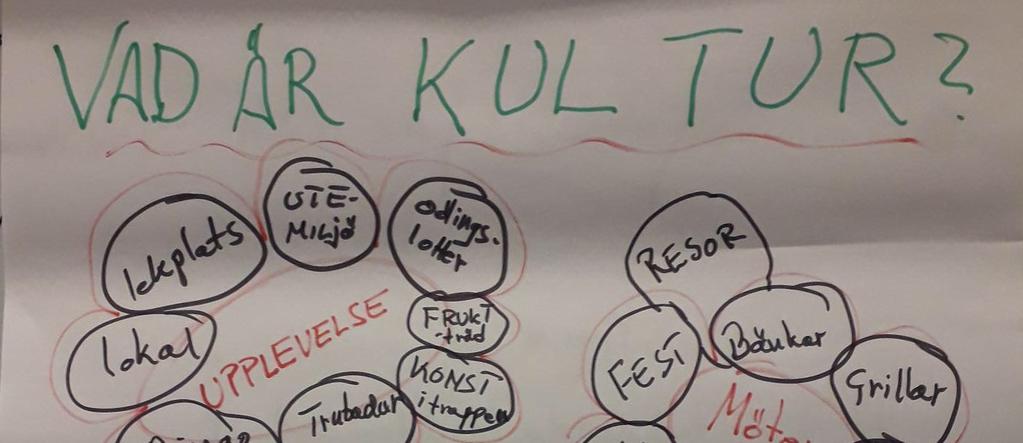 VAD ÄR KULTUR?
UTE-
MILJÖ
odlings-
lotter
lekplats
RESOR
FRUKT
-träd
lokal
UPPLEVELSE
FEST
KONST
i trappen
Trubadur
Grillar